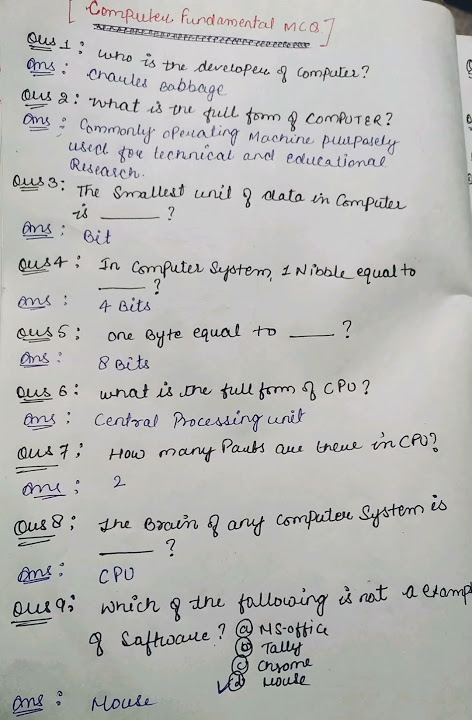 [ Computer Fundamental MCQ ]
Ques 1 : Who is the developer of computer?
Ans : Charles Babbage
Ques 2 : What is the full form of COMPUTER?
Ans : Commonly operating Machine purposely
used for technical and educational
Research.
Ques 3 : The Smallest unit of data in Computer
is ______ ?
Ans : Bit
Ques 4 : In Computer System, 1 Nibble equal to
______ ?
Ans : 4 Bits
Ques 5 : One Byte equal to ____ ?
Ans : 8 Bits
Ques 6 : What is the full form of CPU?
Ans : Central Processing unit
Ques 7 : How many Parts are there in CPU?
Ans : 2
Ques 8 : The Brain of any Computer System is
______ ?
Ans : CPU
Ques 9 : Which of the following is not a examp
of Software? ⓐ MS-office
ⓑ Tally
ⓒ Chrome
✓ⓓ Mouse
Ans : Mouse